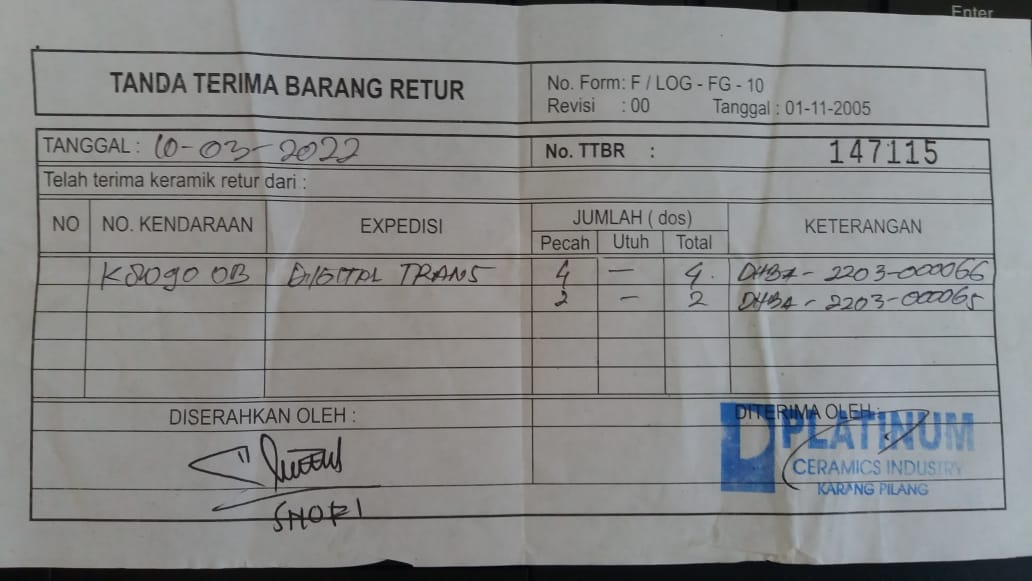 Enter
TANDA TERIMA BARANG RETUR
No. Form: F / LOG - FG - 10
Revisi : 00 Tanggal : 01-11-2005
TANGGAL : 10-03-2022 No. TTBR : 147115
Telah terima keramik retur dari :
NO NO. KENDARAAN EXPEDISI JUMLAH ( dos) KETERANGAN
Pecah Utuh Total
K8090 OB DIGITAL TRANS 4 - 4. DHBA - 2203-000066
2 - 2 DHBA - 2203-000065
DISERAHKAN OLEH : DITERIMA OLEH :
PLATINUM
CERAMICS INDUSTRY
KARANG PILANG